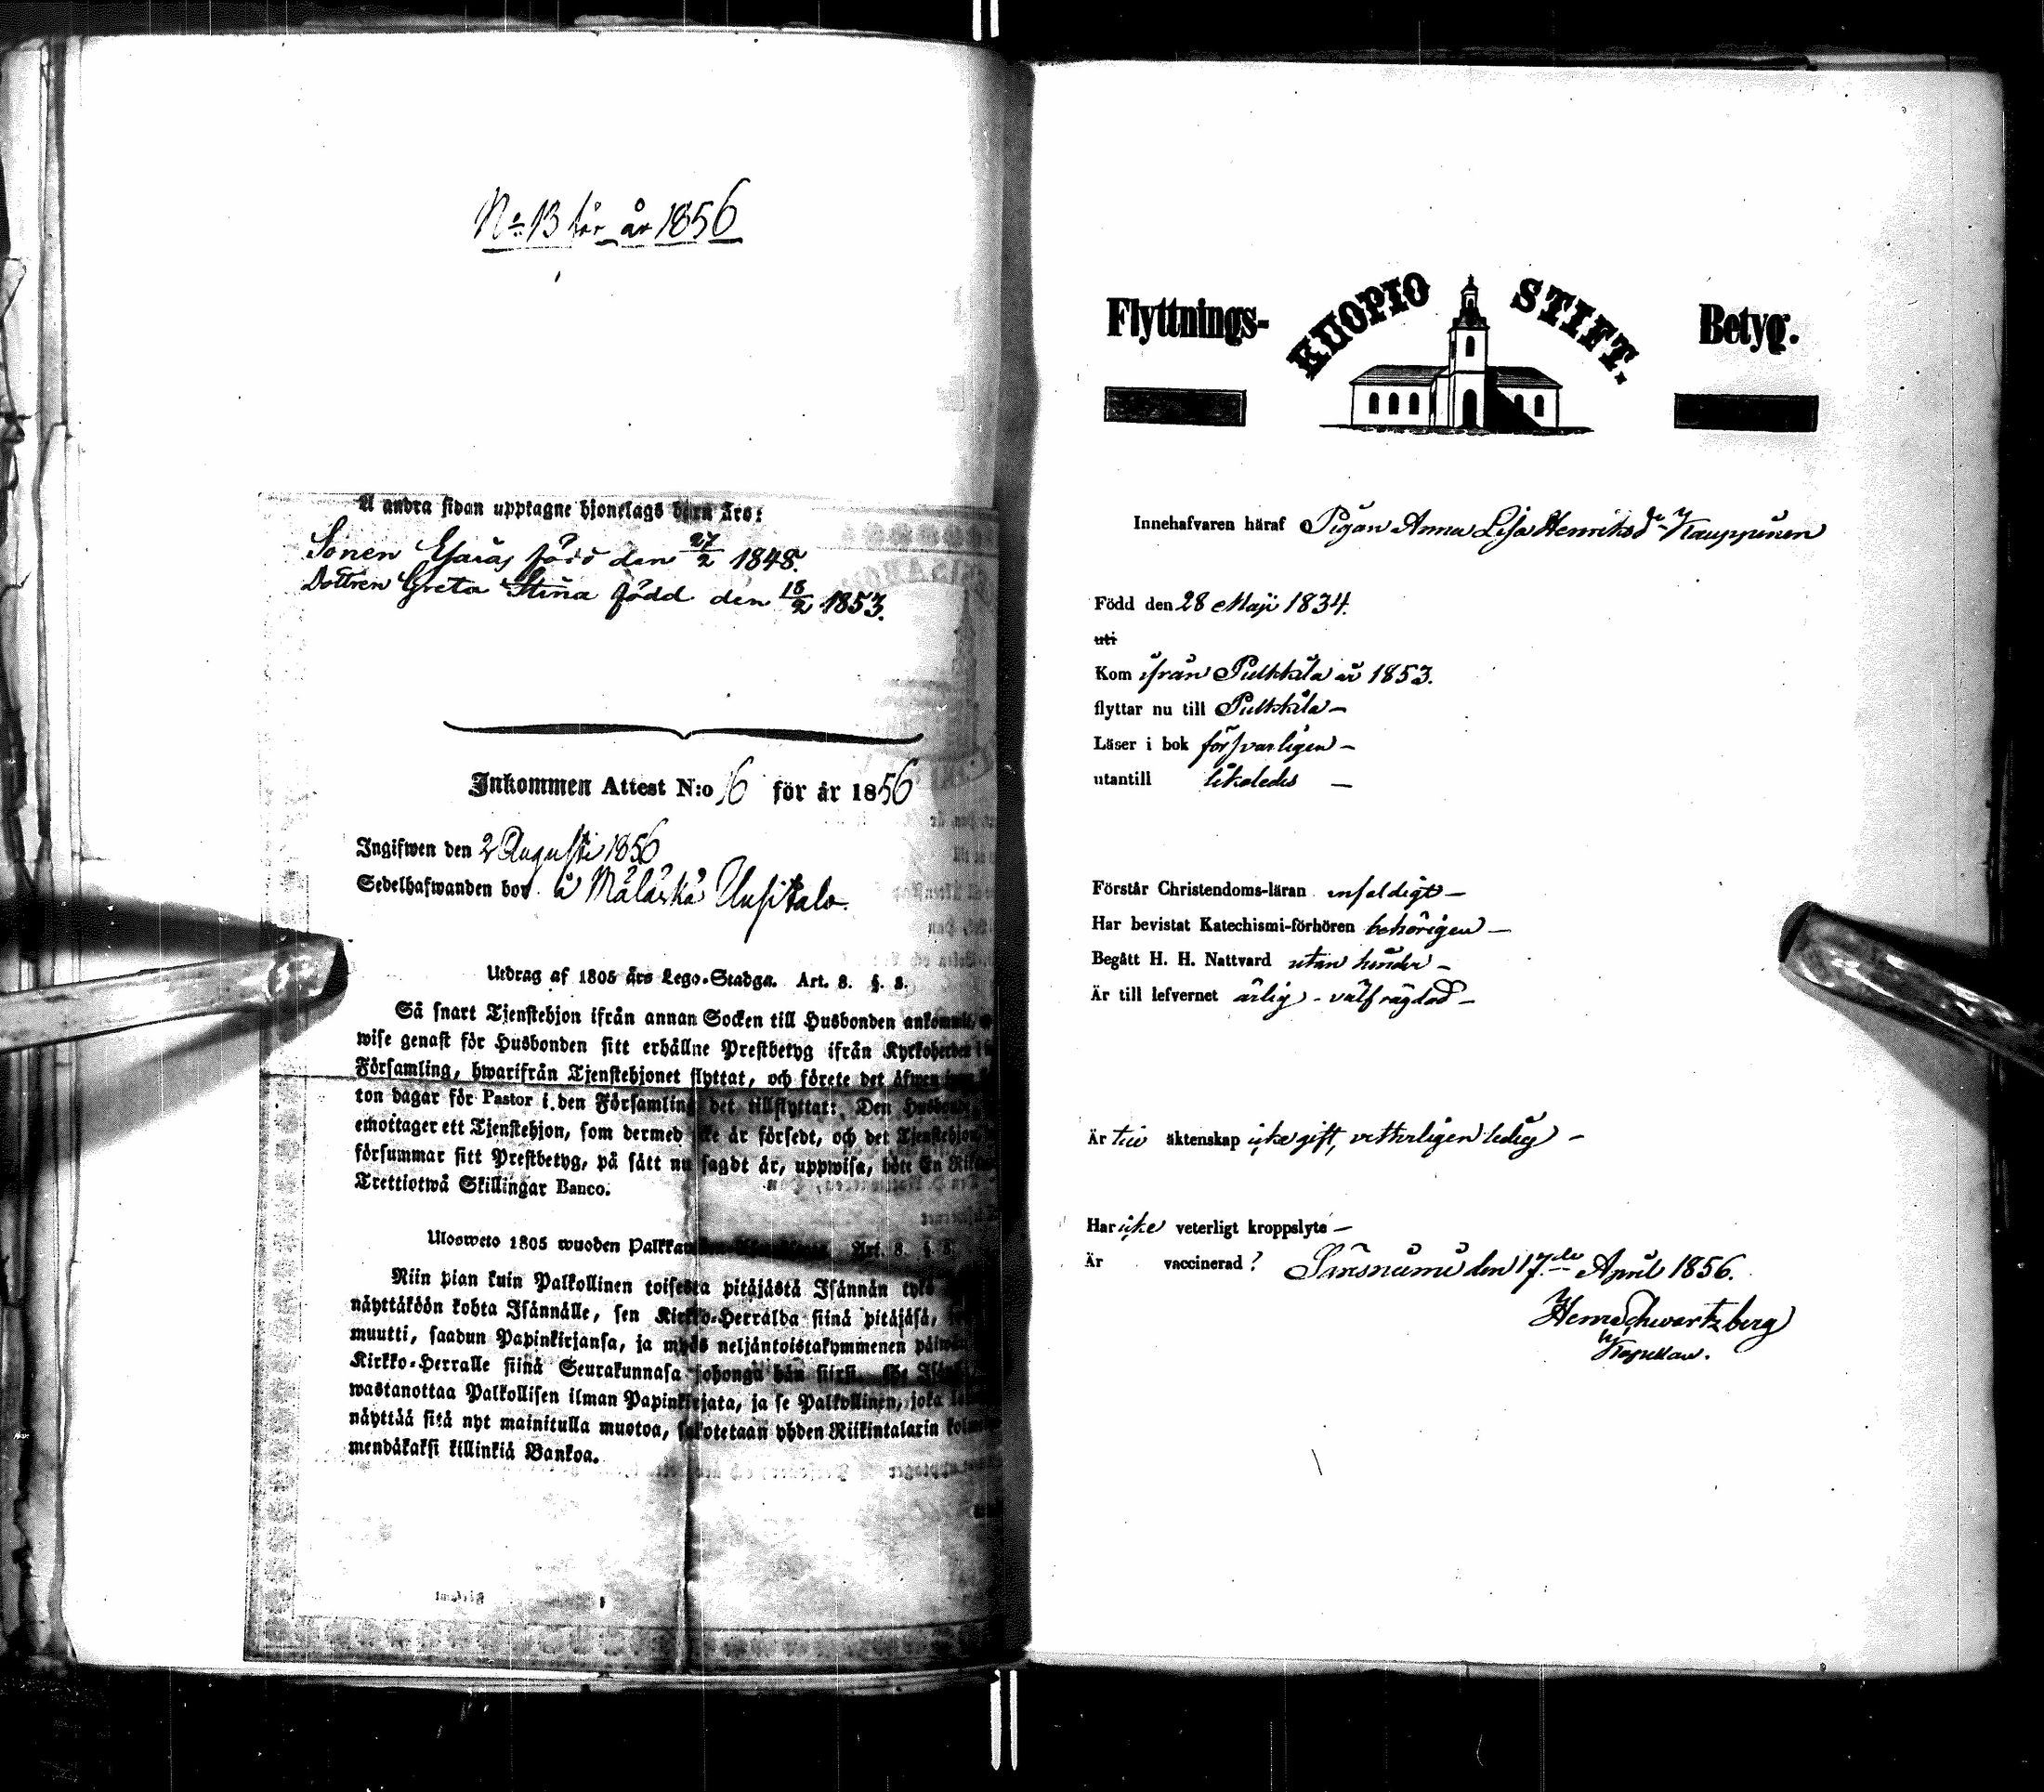 No 13 för år 1856
Å andra sidan upptagne hjonelags barn äro:
Sonen Esaias född den 27/2 1848.
Dottren Greta Stina född den 18/2 1853.
Inkommen Attest N:o 16 för år 1856
Ingifwen den 2 Augusti 1856
Sedelhafwanden bor å Mäläskä Uusitalo.
Utdrag af 1805 års Lego-Stadga. Art. 8. §. 3.
Så snart Tjenstehjon ifrån annan Socken till Husbonden ankommit,
wise genast för Husbonden sitt erhållne Prestbetyg ifrån Kyrkoherden i
Församling, hwarifrån Tjenstehjonet flyttat, och förete det äfwen
ton dagar för Pastor i den Församling det tillflyttat: Den Husbonde
emottager ett Tjenstehjon, som dermed icke är försedt, och det Tjenstehjon,
försummar sitt Prestbetyg, på sätt nu sagdt är, uppwisa, böte En
Trettiotwå Skillingar Banco.
Ulosweto 1805 wuoden Art. 8. §. 3.
Niin pian kuin Palkollinen toisesta pitäjästä Isännän tykö
näyttäköön kohta Isännälle, sen Kirkko-Herralda siinä pitäjäsä,
muutti, saadun Papinkirjansa, ja myös neljäntoistakymmenen päiwän
Kirkko-Herralle siinä Seurakunnasa johonga hän siirsi. Se
wastanottaa Palkollisen ilman Papinkirjata, ja se Palkollinen, joka
näyttää sitä nyt mainitulla muotoa, sakotetaan yhden Riikintalarin
mendäkaksi killinkiä Bankoa.
Flyttnings- KUOPIO STIFT. Betyg.
Innehafvaren häraf Pigan Anna Lisa Henriksdr Kauppinen
Född den 28 Maji 1834.
uti
Kom ifrån Pulkkila år 1853.
flyttar nu till Pulkkila –
Läser i bok försvarligen –
utantill likaledes –
Förstår Christendoms-läran enfaldigt –
Har bevistat Katechismi-förhören behörigen –
Begått H. H. Nattvard utan hinder –
Är till lefvernet ärlig – välfrägdad –
Är till äktenskap icke gift, vetterligen ledig –
Har icke veterligt kroppslyte –
Är vaccinerad? Säräsniemi den 17de April 1856.
Henr Schwartzberg
Kapellan.